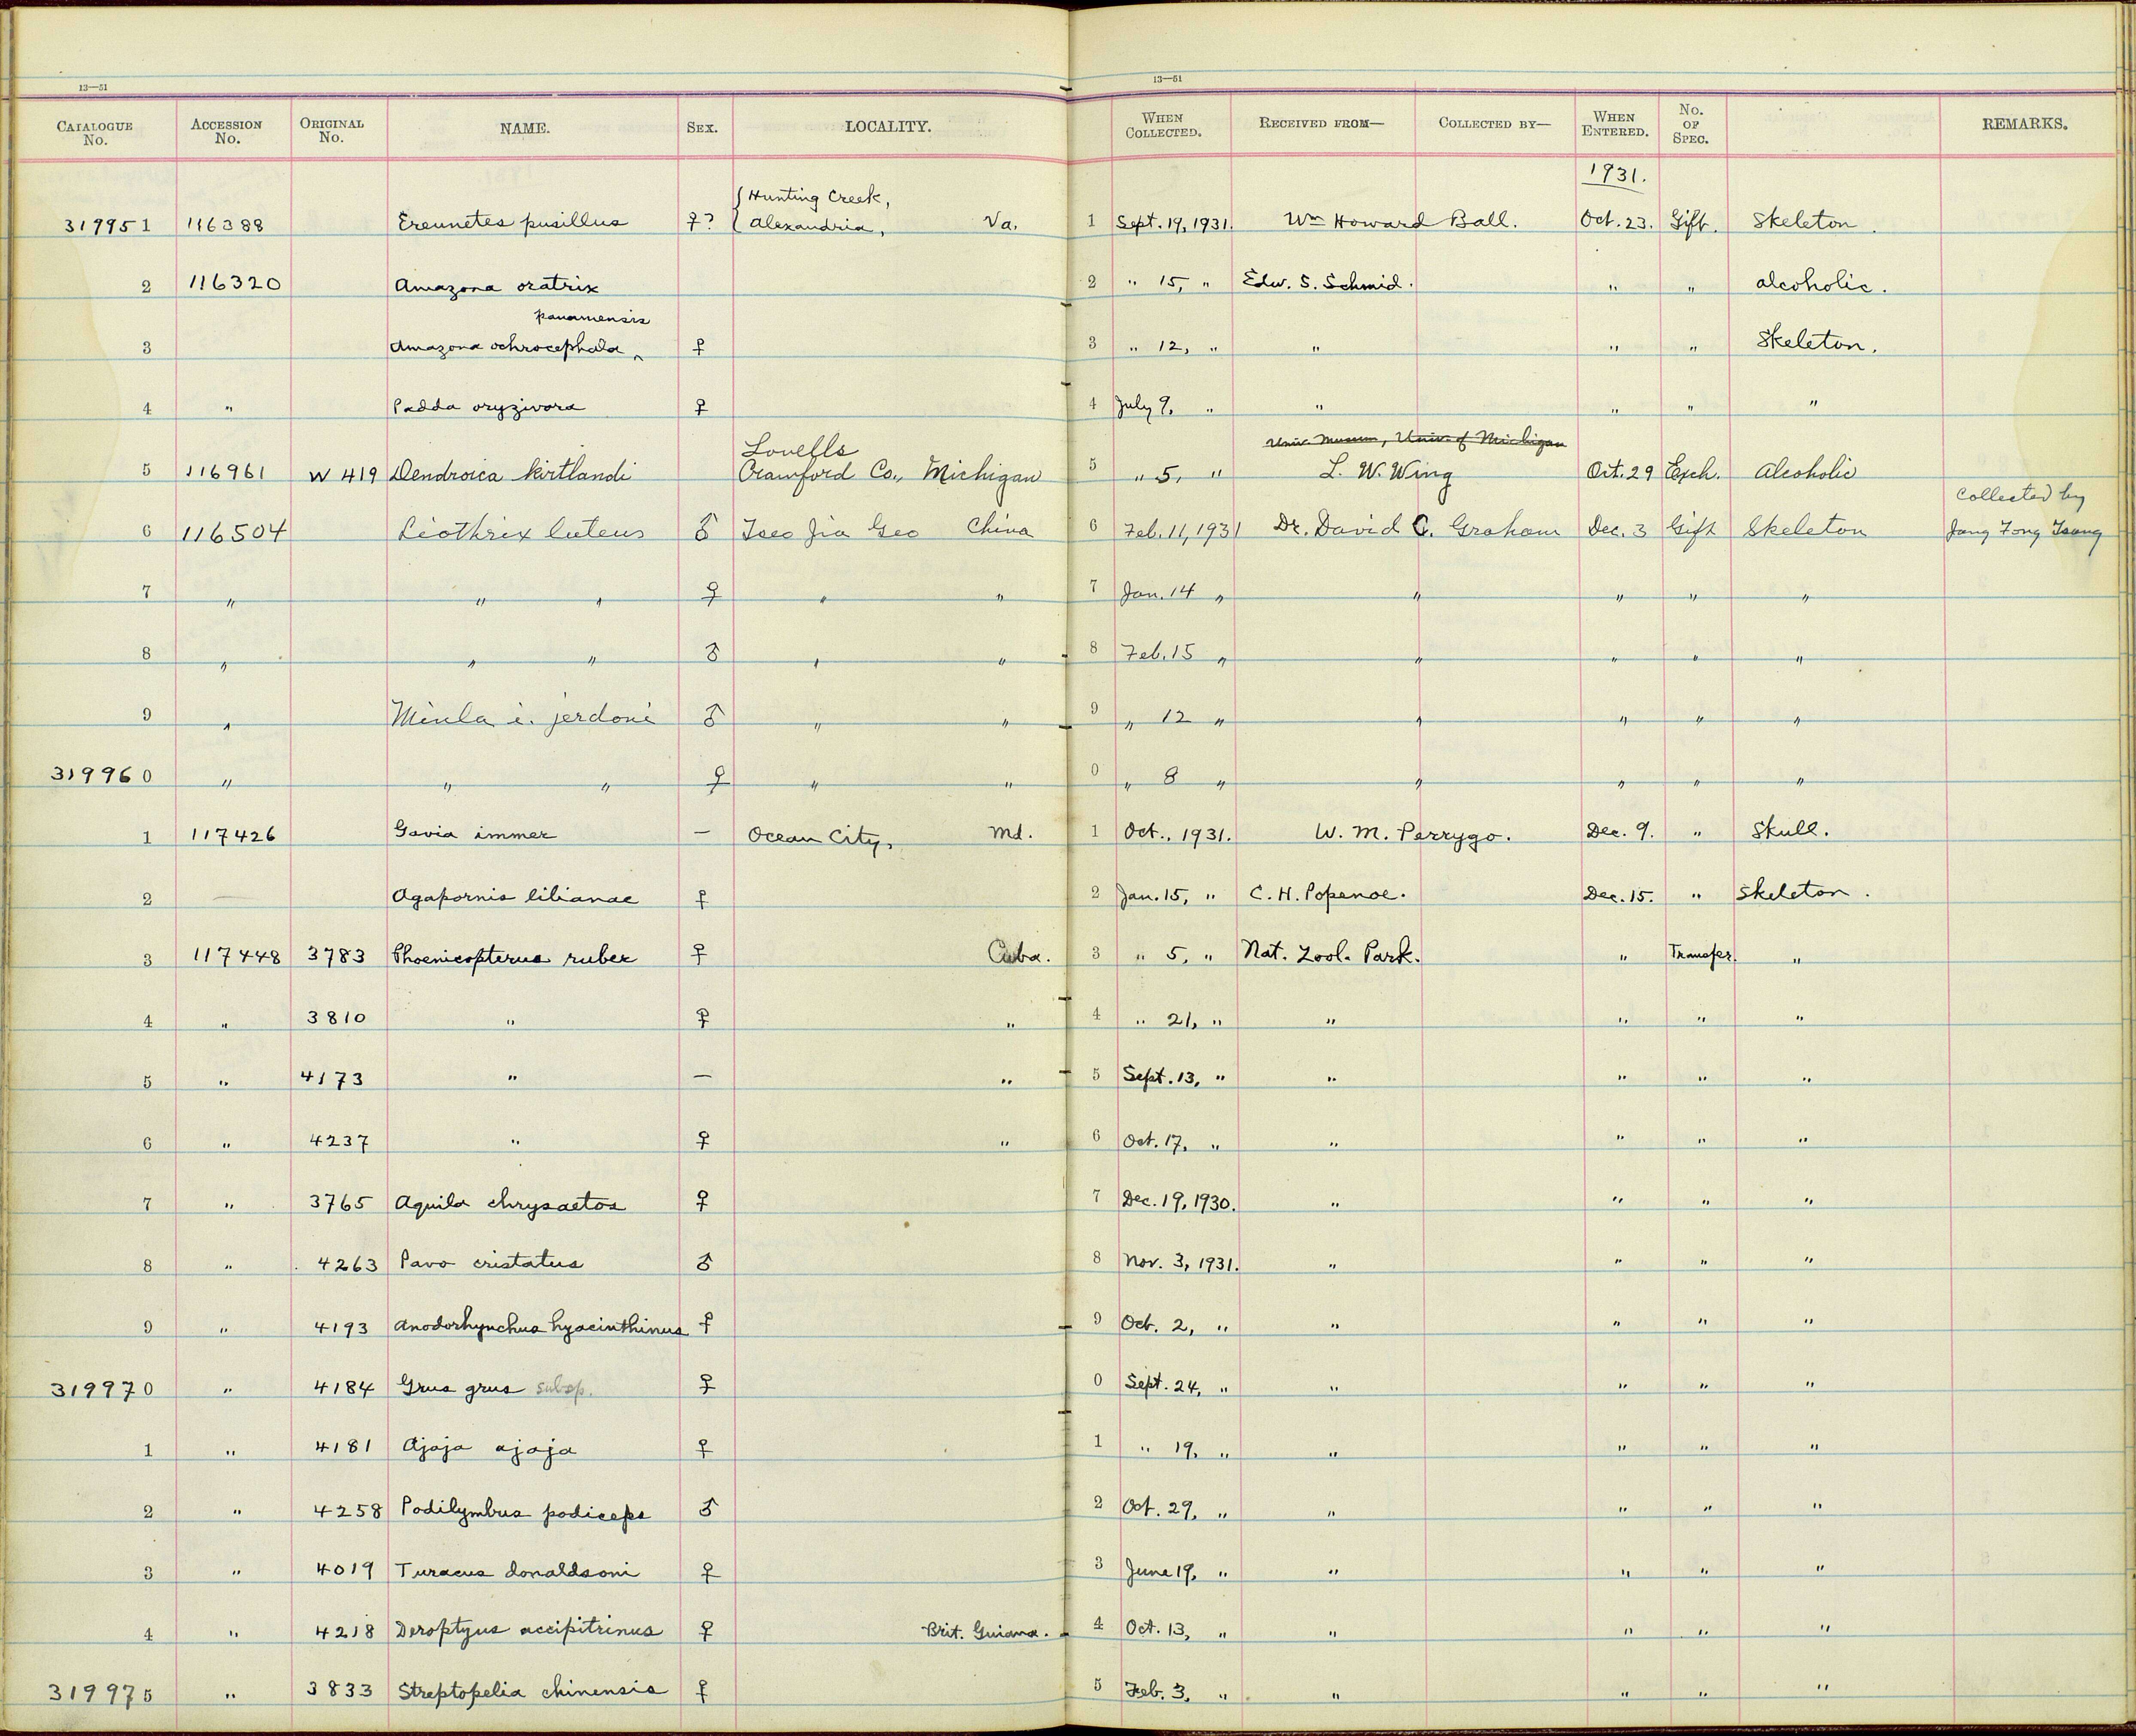 13—51
13—51
CATALOGUE No. ACCESSION No. ORIGINAL No. NAME. SEX. LOCALITY. WHEN COLLECTED. RECEIVED FROM— COLLECTED BY— WHEN ENTERED. No. OF SPEC. REMARKS.
1931.
Hunting Creek,
319951 116388 Ereunetes pusillus ♀? Alexandria, Va. 1 Sept. 19, 1931. Wm Howard Ball. Oct. 23. Gift. Skeleton.
2 116320 Amazona oratrix 2 " 15, " Edw. S. Schmid. " " alcoholic.
panamensis
3 Amazona ochrocephala ^ ♀ 3 " 12, " " " " Skeleton.
4 " Padda oryzivora ♀ 4 July 9, " " " " "
Lovells Univ. Museum, Univ. of Michigan
5 116961 W 419 Dendroica kirtlandi Crawford Co., Michigan 5 " 5, " L. W. Wing Oct. 29 Exch. Alcoholic
Collected by
6 116504 Liothrix luteus ♂ Tseo Jia Geo China 6 Feb. 11, 1931 Dr. David C. Graham Dec. 3 Gift Skeleton Jang Fong Tsang
7 " " " ♀ " " 7 Jan. 14 " " " " "
8 " " " ♂ " " 8 Feb. 15 " " " " "
9 " Minla i. jerdoni ♂ " " 9 " 12 " " " " "
319960 " " " ♀ " " 0 " 8 " " " " "
1 117426 Gavia immer — Ocean City, Md. 1 Oct., 1931. W. M. Perrygo. Dec. 9. " Skull.
2 — Agapornis lilianae ♀ 2 Jan. 15, " C. H. Popenoe. Dec. 15. " Skeleton.
3 117448 3783 Phoenicopterus ruber ♀ Cuba. 3 " 5, " Nat. Zool. Park. " Transfer. "
4 " 3810 " ♀ " 4 " 21, " " " " "
5 " 4173 " — " 5 Sept. 13, " " " " "
6 " 4237 " ♀ " 6 Oct. 17, " " " " "
7 " 3765 Aquila chrysaetos ♀ 7 Dec. 19, 1930. " " " "
8 " 4263 Pavo cristatus ♂ 8 Nov. 3, 1931. " " " "
9 " 4193 Anodorhynchus hyacinthinus ♀ 9 Oct. 2, " " " " "
319970 " 4184 Grus grus subsp. ♀ 0 Sept. 24, " " " " "
1 " 4181 Ajaja ajaja ♀ 1 " 19, " " " " "
2 " 4258 Podilymbus podiceps ♂ 2 Oct. 29, " " " " "
3 " 4019 Turacus donaldsoni ♀ 3 June 19, " " " " "
4 " 4218 Deroptyus accipitrinus ♀ Brit. Guiana. 4 Oct. 13, " " " " "
319975 " 3833 Streptopelia chinensis ♀ 5 Feb. 3, " " " " "